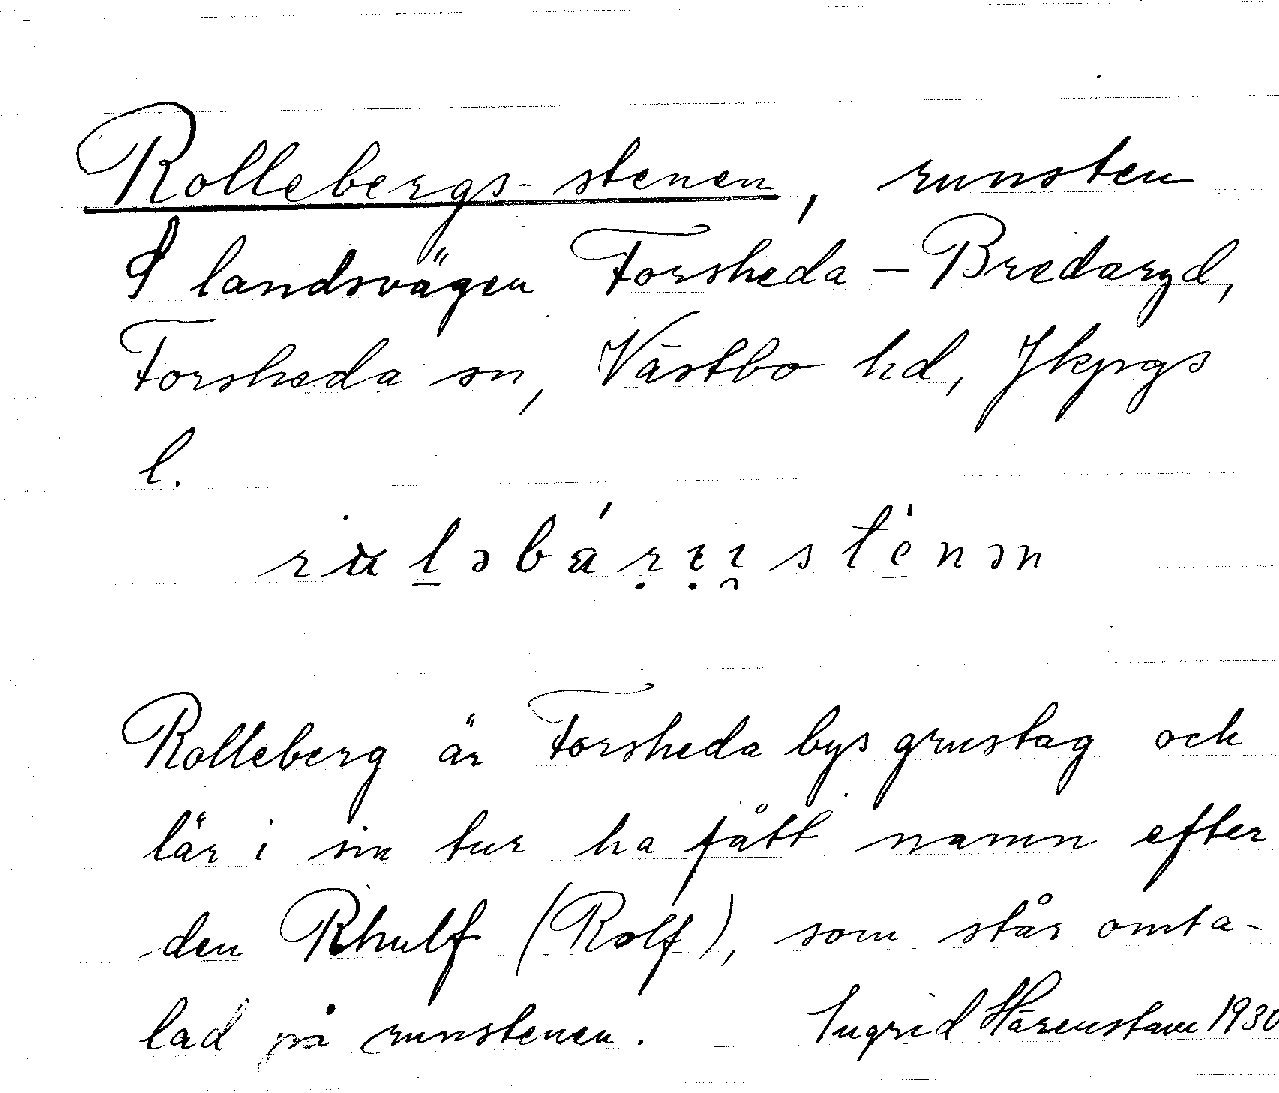 Rollebergs-stenen, runsten
I landsvägen Forsheda – Bredaryd,
Forsheda sn, Västbo hd, Jkpgs
l.
Rolleberg är Forsheda bys grustag och
lär i sin tur ha fått namn efter
den Rhulf (Rolf), som står omta-
lad på runstenen. Ingrid Härenstam 1930